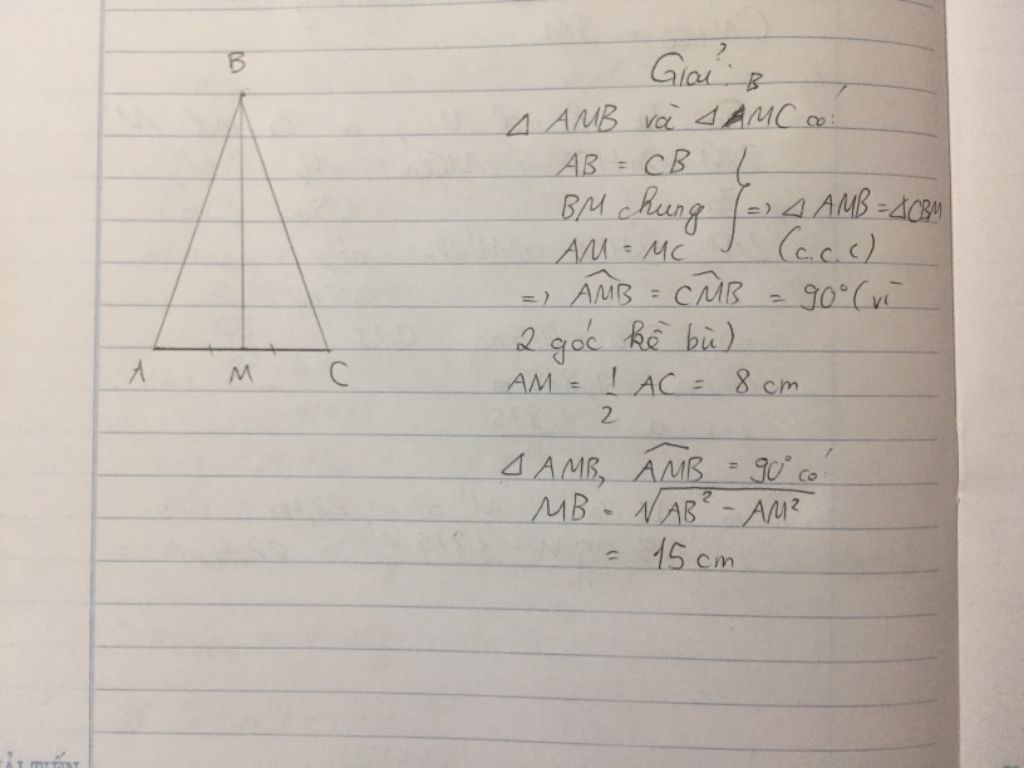 B
A
M
C
Giải:
△ AMB và △ BMC có:
AB = CB
BM chung } => △ AMB = △CBM
AM = MC (c.c.c)
=> AMB = CMB = 90° (vì
2 góc kề bù)
AM = 1/2 AC = 8 cm
△ AMB, AMB = 90° có:
MB = √AB² - AM²
= 15 cm